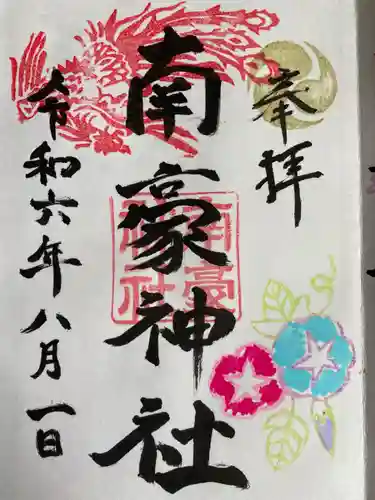 奉拝
南臺神社
南臺神社
令和六年八月一日